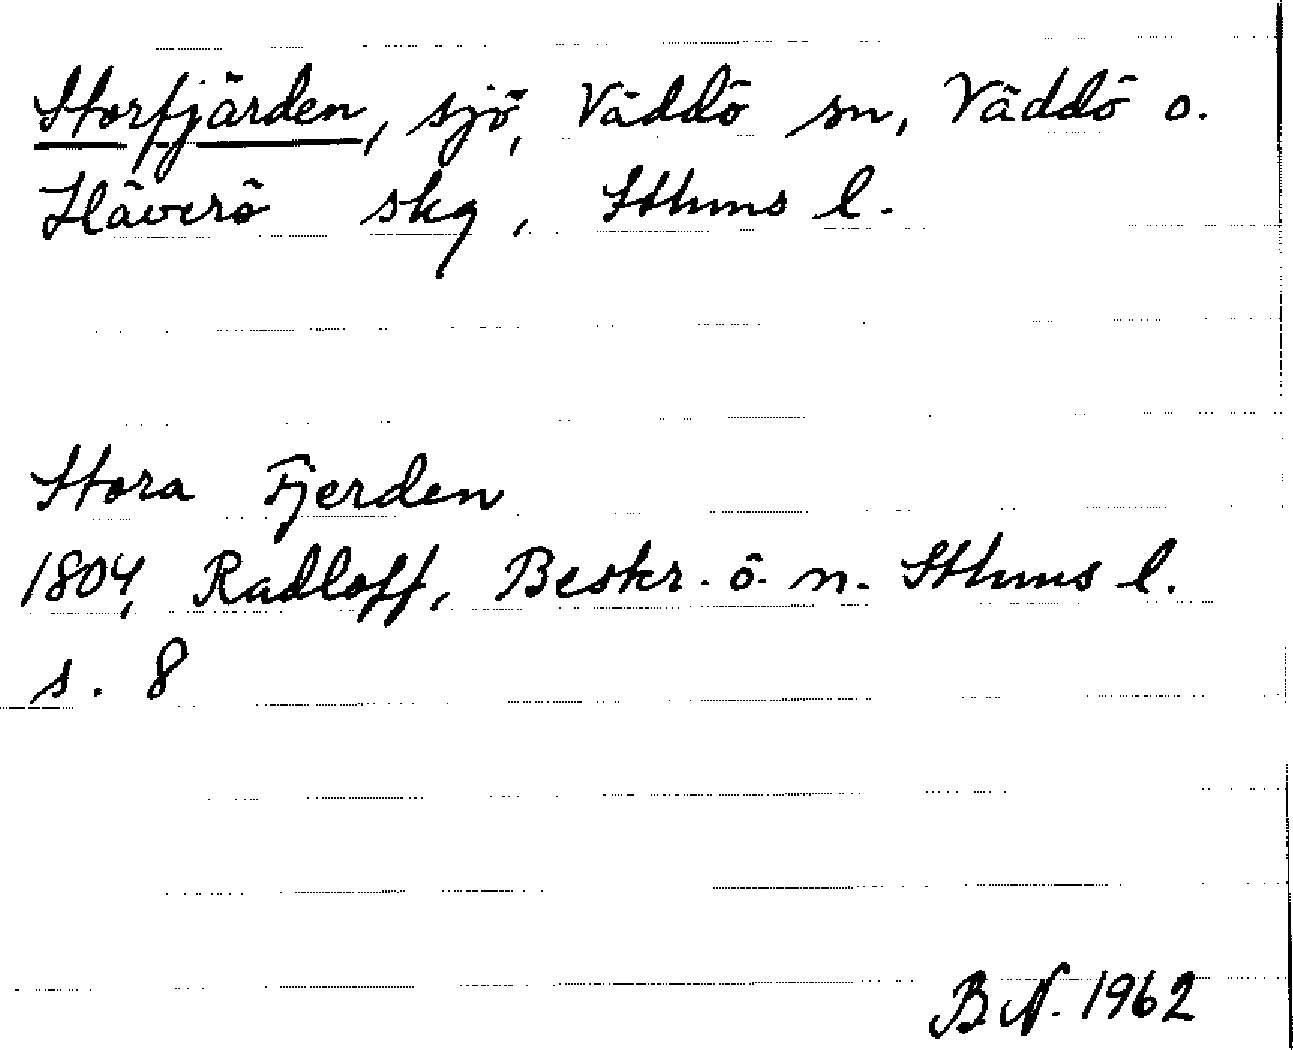 Storfjärden, sjö, Väddö sn, Väddö o.
Häverö skg, Sthms l.
Stora Fjerden
1804, Radloff, Beskr. ö. n. Sthms l.
s. 8
B N. 1962